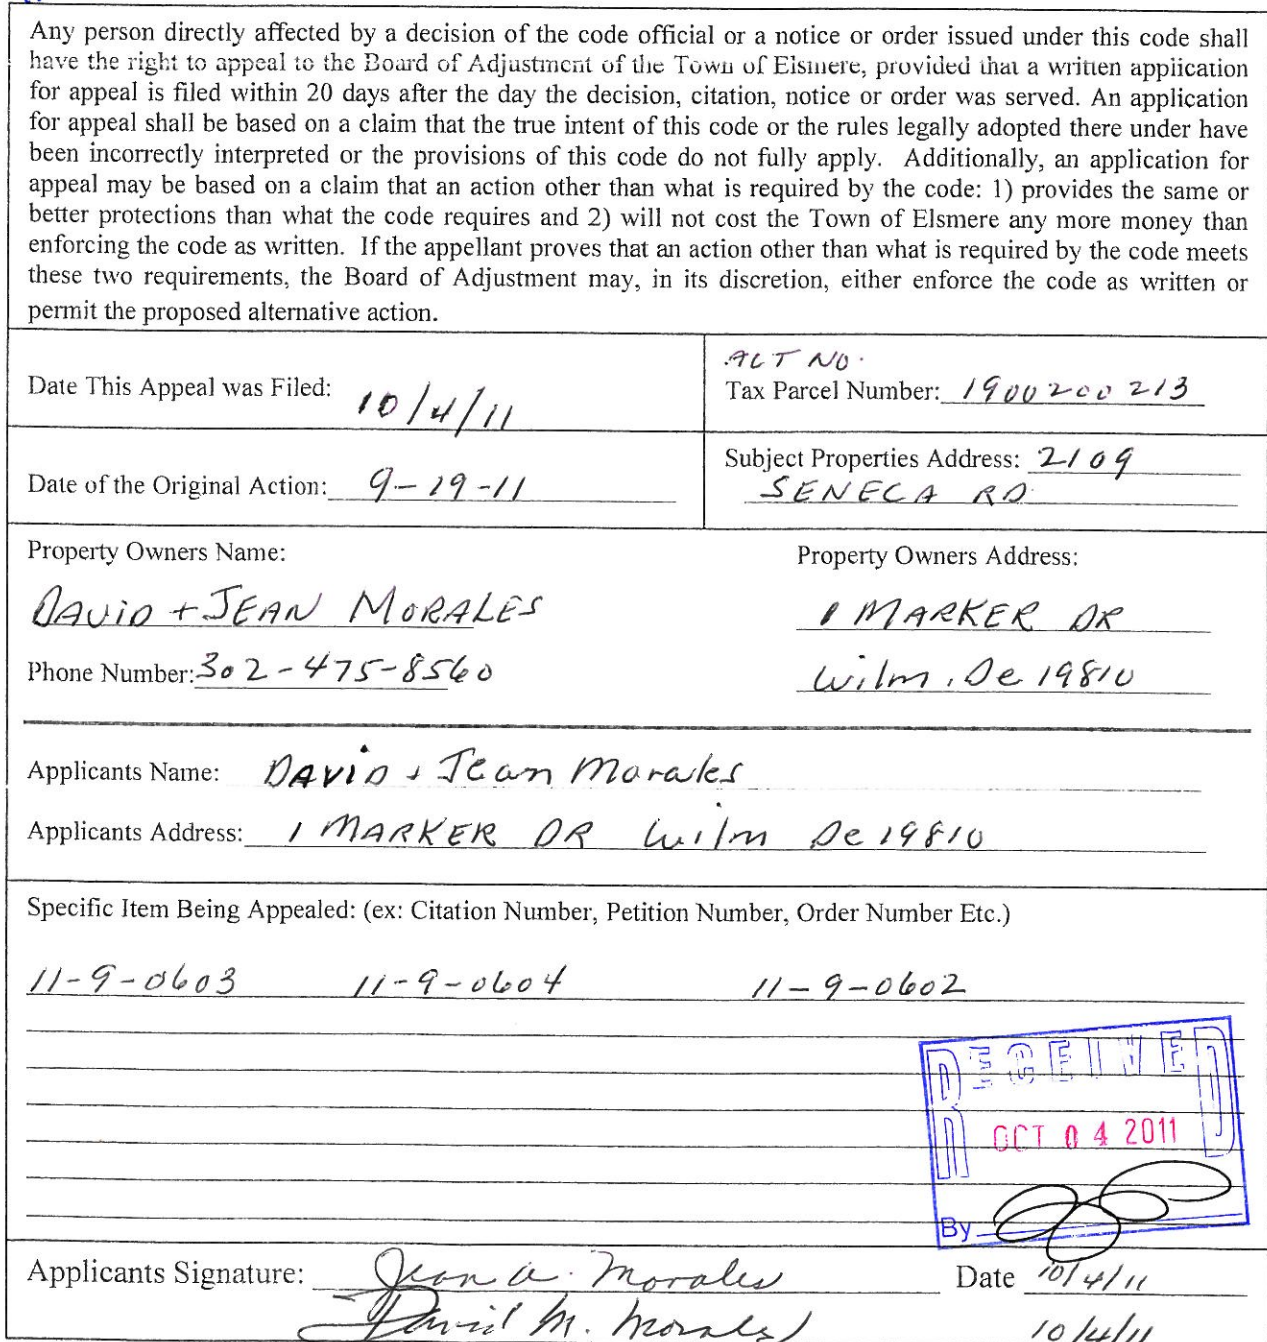 Any person directly affected by a decision of the code official or a notice or order issued under this code shall
have the right to appeal to the Board of Adjustment of the Town of Elsmere, provided that a written application
for appeal is filed within 20 days after the day the decision, citation, notice or order was served. An application
for appeal shall be based on a claim that the true intent of this code or the rules legally adopted there under have
been incorrectly interpreted or the provisions of this code do not fully apply. Additionally, an application for
appeal may be based on a claim that an action other than what is required by the code: 1) provides the same or
better protections than what the code requires and 2) will not cost the Town of Elsmere any more money than
enforcing the code as written. If the appellant proves that an action other than what is required by the code meets
these two requirements, the Board of Adjustment may, in its discretion, either enforce the code as written or
permit the proposed alternative action.
Date This Appeal was Filed: 10/4/11
ALT NO.
Tax Parcel Number: 1900200213
Date of the Original Action: 9-19-11
Subject Properties Address: 2109
SENECA RD.
Property Owners Name:
Property Owners Address:
DAVID + JEAN MORALES
1 MARKER DR
Phone Number: 302-475-8560
Wilm. De 19810
Applicants Name: DAVID + Jean Morales
Applicants Address: 1 MARKER DR Wilm De 19810
Specific Item Being Appealed: (ex: Citation Number, Petition Number, Order Number Etc.)
11-9-0603 11-9-0604 11-9-0602
RECEIVED
OCT 04 2011
By
Applicants Signature: Jean A. Morales Date 10/4/11
David M. Morales 10/4/11